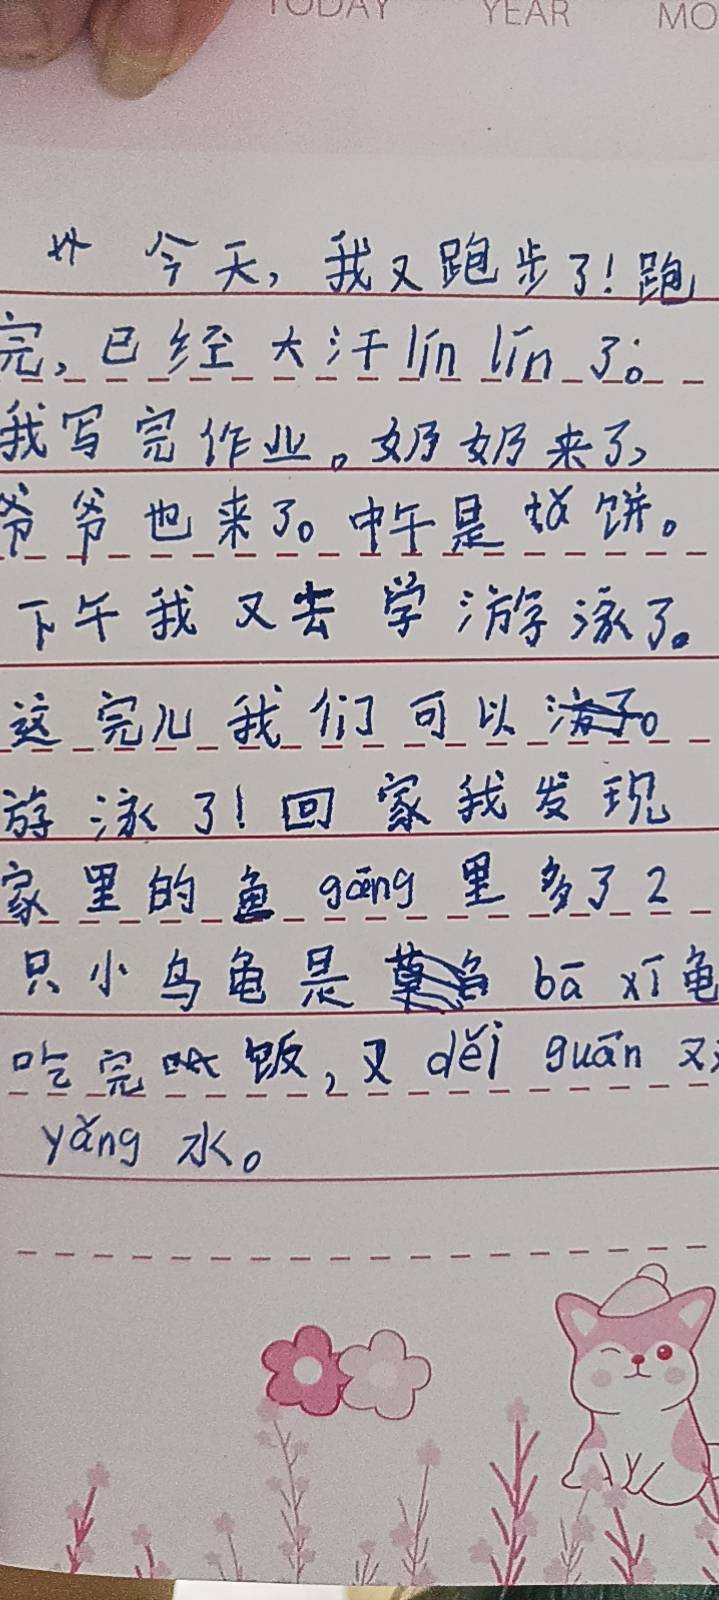 TODAY YEAR MO
今天，我又跑步了！跑
完，已经大汗lín lín了。
我写完作业。奶奶来了，
爷爷也来了。中午是 饼。
下午我又去学游泳了。
这完儿我们可以
游泳了！回家我发现
家里的鱼gāng里多了2
只小乌龟是 bā xī龟
吃完饭，又děi guān
yǎng水。